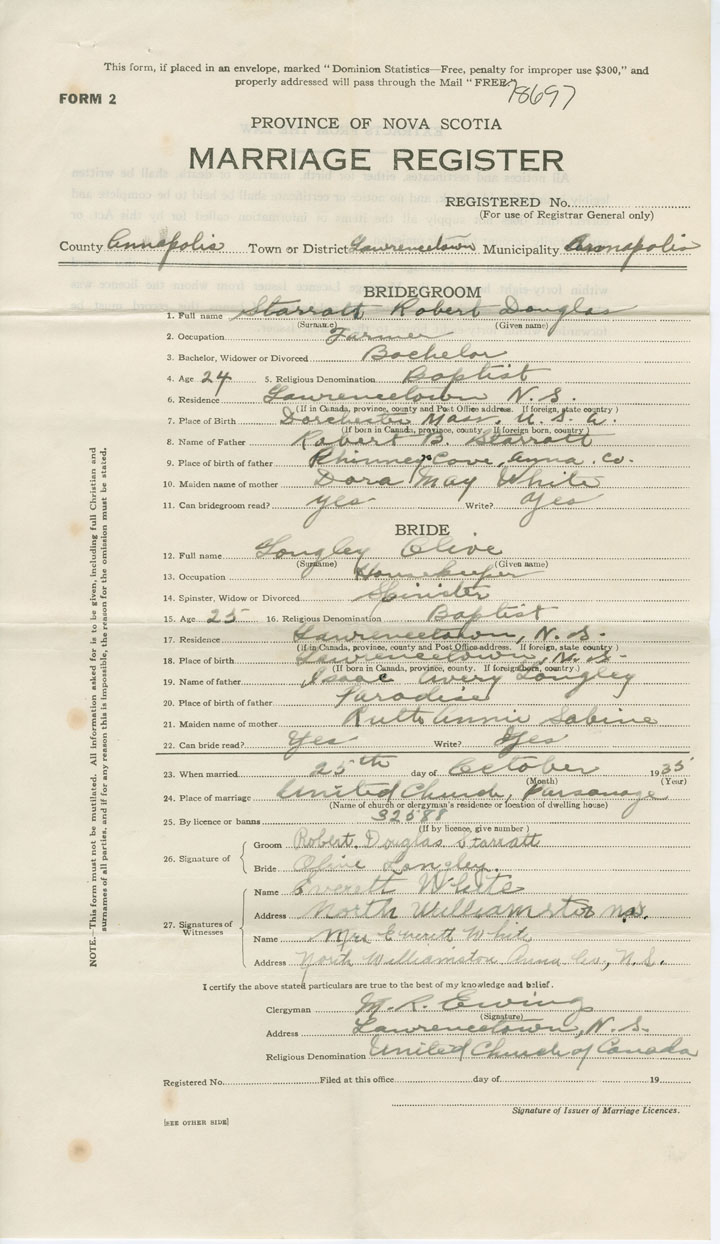 This form, if placed in an envelope, marked "Dominion Statistics—Free, penalty for improper use $300," and
properly addressed will pass through the Mail "FREE."
78697
FORM 2
PROVINCE OF NOVA SCOTIA
MARRIAGE REGISTER
REGISTERED No.
(For use of Registrar General only)
County Annapolis Town or District Lawrencetown Municipality Annapolis
BRIDEGROOM
1. Full name Starratt Robert Douglas
(Surname) (Given name)
2. Occupation Farmer
3. Bachelor, Widower or Divorced Bachelor
4. Age 24 5. Religious Denomination Baptist
6. Residence Lawrencetown N. S.
(If in Canada, province, county and Post Office address. If foreign, state country)
7. Place of Birth Dorchester Mass. U. S. A.
(If born in Canada, province, county. If foreign born, country)
8. Name of Father Robert B. Starratt
9. Place of birth of father Phinney Cove, Anna. Co.
10. Maiden name of mother Dora May White
11. Can bridegroom read? Yes Write? Yes
BRIDE
12. Full name Longley Olive
(Surname) (Given name)
13. Occupation Housekeeper
14. Spinster, Widow or Divorced Spinster
15. Age 25 16. Religious Denomination Baptist
17. Residence Lawrencetown, N. S.
(If in Canada, province, county and Post Office address. If foreign, state country)
18. Place of birth Lawrencetown, N. S.
(If born in Canada, province, county. If foreign born, country)
19. Name of father Isaac Avery Longley
20. Place of birth of father Paradise
21. Maiden name of mother Ruth Annie Sabine
22. Can bride read? Yes Write? Yes
23. When married 25th day of October 1935
(Month) (Year)
24. Place of marriage United Church, Parsonage
(Name of church or clergyman's residence or location of dwelling house)
25. By licence or banns 32588
(If by licence, give number)
26. Signature of
Groom Robert Douglas Starratt
Bride Olive Longley.
27. Signatures of Witnesses
Name Everett White
Address North Williamston N.S.
Name Mrs Everett White
Address North Williamston Anna Co., N.S.
I certify the above stated particulars are true to the best of my knowledge and belief.
Clergyman M. R. Ewing
(Signature)
Address Lawrencetown, N. S.
Religious Denomination United Church of Canada
Registered No. Filed at this office day of 19
Signature of Issuer of Marriage Licences.
[SEE OTHER SIDE]
NOTE.—This form must not be mutilated. All information asked for is to be given, including full Christian and
surnames of all parties, and if for any reason this is impossible, the reason for the omission must be stated.